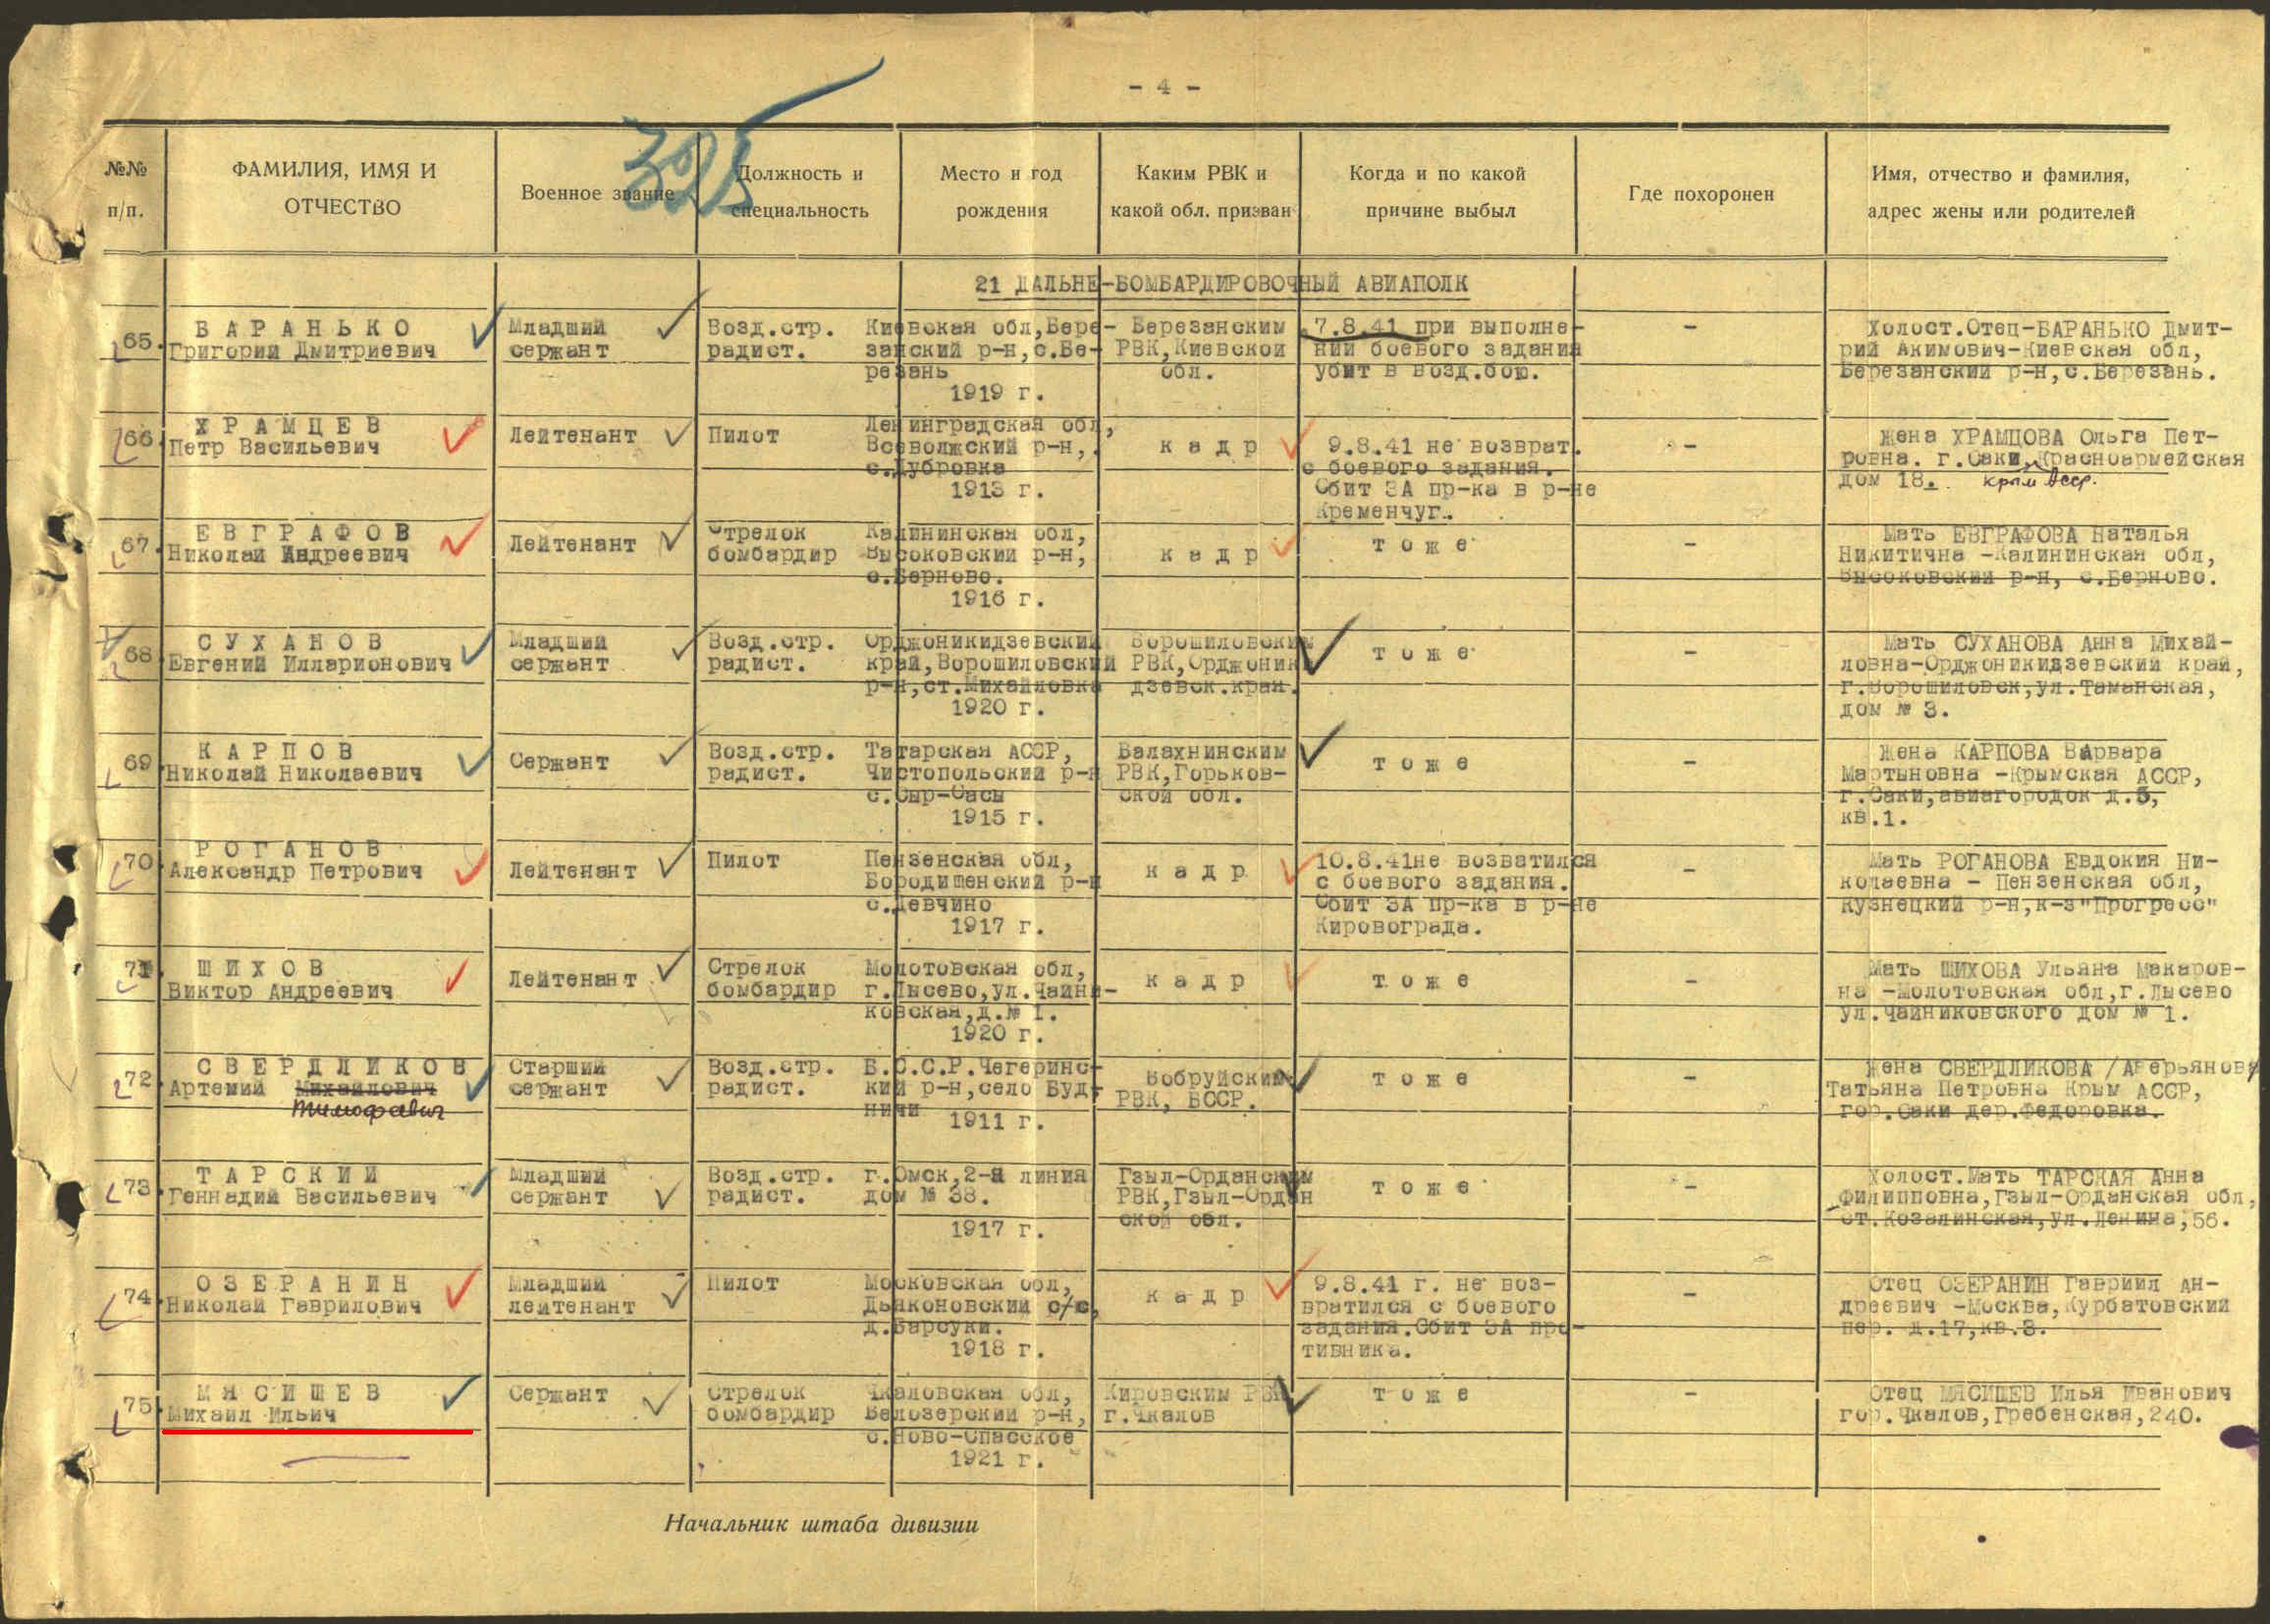 - 4 -
325
№№ п/п.
ФАМИЛИЯ, ИМЯ И ОТЧЕСТВО
Военное звание
Должность и специальность
Место и год рождения
Каким РВК и какой обл. призван
Когда и по какой причине выбыл
Где похоронен
Имя, отчество и фамилия, адрес жены или родителей
21 ДАЛЬНЕ-БОМБАРДИРОВОЧНЫЙ АВИАПОЛК
65.
БАРАНЬКО
Григорий Дмитриевич
Младший
сержант
Возд.стр.
радист.
Киевская обл,Бере-
занский р-н,с.Бе-
резань
1919 г.
Березанским
РВК,Киевской
обл.
7.8.41 при выполне-
нии боевого задания
убит в возд.бою.
-
Холост.Отец-БАРАНЬКО Дмит-
рий Акимович-Киевская обл,
Березанский р-н,с.Березань.
66.
ХРАМЦЕВ
Петр Васильевич
Лейтенант
Пилот
Ленинградская обл,
Всеволжский р-н,
с.Дубровка
1913 г.
кадр
9.8.41 не возврат.
с боевого задания.
Сбит ЗА пр-ка в р-не
Кременчуг.
-
Жена ХРАМЦОВА Ольга Пет-
ровна. г.Саки,Красноармейская
дом 18.
Крым Асср.
67.
ЕВГРАФОВ
Николай Андреевич
Лейтенант
Стрелок
бомбардир
Калининская обл,
Высоковский р-н,
с.Берново.
1916 г.
кадр
тоже
-
Мать ЕВГРАФОВА Наталья
Никитична -Калининская обл,
Высоковский р-н, с.Берново.
68
СУХАНОВ
Евгений Илларионович
Младший
сержант
Возд.стр.
радист.
Орджоникидзевский
край,Ворошиловский
р-н,ст.Михайловка
1920 г.
Ворошиловским
РВК,Орджоники
дзевск.края.
тоже
-
Мать СУХАНОВА Анна Михай-
ловна-Орджоникидзевский край,
г.Ворошиловск,ул.Таманская,
дом № 3.
69
КАРПОВ
Николай Николаевич
Сержант
Возд.стр.
радист.
Татарская АССР,
Чистопольский р-н
с.Сыр-Сасы
1915 г.
Балахнинским
РВК,Горьков-
ской обл.
тоже
-
Жена КАРПОВА Варвара
Мартыновна -Крымская АССР,
г.Саки,авиагородок д.5,
кв.1.
70
РОГАНОВ
Александр Петрович
Лейтенант
Пилот
Пензенская обл,
Бородишенский р-н
с.Левчино
1917 г.
кадр
10.8.41не возватился
с боевого задания.
Сбит ЗА пр-ка в р-не
Кировограда.
-
Мать РОГАНОВА Евдокия Ни-
колаевна - Пензенская обл,
Кузнецкий р-н,к-з"Прогресс"
71.
ШИХОВ
Виктор Андреевич
Лейтенант
Стрелок
бомбардир
Молотовская обл,
г.Лысево,ул.Чайни-
ковская,д.№ 1.
1920 г.
кадр
тоже
-
Мать ШИХОВА Ульяна Макаров-
на -Молотовская обл,г.Лысево
ул.Чайниковского дом № 1.
72
СВЕРДЛИКОВ
Артемий Михайлович
Тимофевич
Старший
сержант
Возд.стр.
радист.
Б.С.С.Р.Чегеринс-
кий р-н,село Буд-
ничи
1911 г.
Бобруйским
РВК, БССР.
тоже
-
Жена СВЕРДЛИКОВА /Аверьянова/
Татьяна Петровна Крым АССР,
гор.Саки дер.Федоровка.
73
ТАРСКИЙ
Геннадий Васильевич
Младший
сержант
Возд.стр.
радист.
г.Омск,2-я линия
дом № 38.
1917 г.
Гзыл-Орданским
РВК,Гзыл-Ордан
ской обл.
тоже
-
Холост.Мать ТАРСКАЯ Анна
Филипповна,Гзыл-Орданская обл,
ст.Козалинская,ул.Ленина,56.
74
ОЗЕРАНИН
Николай Гаврилович
Младший
лейтенант
Пилот
Московская обл,
Дьяконовский с/с,
д.Барсуки.
1918 г.
кадр
9.8.41 г. не воз-
вратился с боевого
задания.Сбит ЗА про-
тивника.
-
Отец ОЗЕРАНИН Гавриил Ан-
дреевич -Москва,Курбатовский
пер. д.17,кв.3.
75
МЯСИШЕВ
Михаил Ильич
Сержант
Стрелок
бомбардир
Чкаловская обл,
Белозерский р-н,
с.Ново-Спасское
1921 г.
Кировским РВК
г.Чкалов
тоже
-
Отец МЯСИШЕВ Илья Иванович
гор.Чкалов,Гребенская,240.
Начальник штаба дивизии